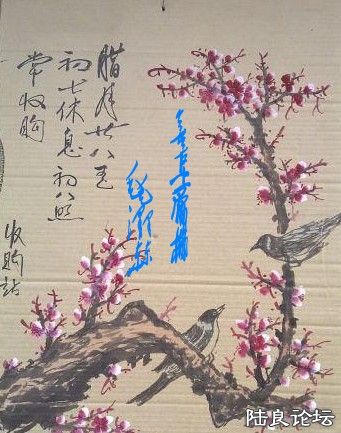 腊月廿八至
初七休息初八照
常收购
收购站
陆良论坛